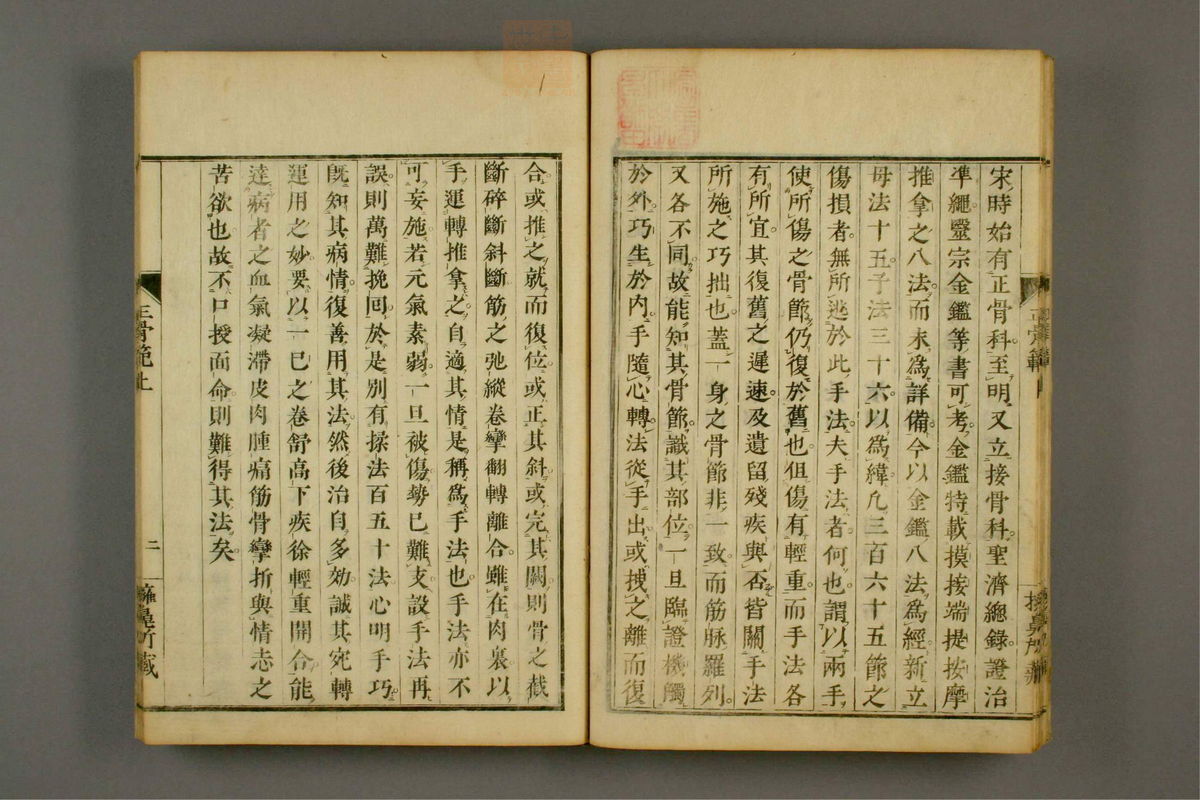 宋時始有正骨科至明又立接骨科聖濟總錄證治
凖繩毉宗金鑑等書可考金鑑特載摸按端提按摩
推拿之八法而未爲詳備今以金鑑八法爲經新立
母法十五子法三十六以爲緯凢三百六十五節之
傷損者無所逃於此手法夫手法者何也謂以兩手
使所傷之骨節仍復於舊也但傷有輕重而手法各
有所宜其復舊之遲速及遺留殘疾與否皆關手法
所施之巧拙也蓋一身之骨節非一致而筋脉羅列
又各不同故能知其骨節識其部位一旦臨證機觸
於外巧生於內手隨心轉法從手出或拽之離而復
合或推之就而復位或正其斜或完其闕則骨之截
斷碎斷斜斷筋之弛縱卷攣翻轉離合雖在肉裏以
手運轉推拿之自適其情是稱爲手法也手法亦不
可妄施若元氣素弱一旦被傷勢已難支設手法再
誤則萬難挽囘於是別有揉法百五十法心明手巧
旣知其病情復善用其法然後治自多効誠其宛轉
運用之妙要以一已之卷舒高下疾徐輕重開合能
達病者之血氣凝滯皮肉腫痛筋骨攣折與情志之
苦欲也故不口授面命則難得其法矣
正骨範上
二